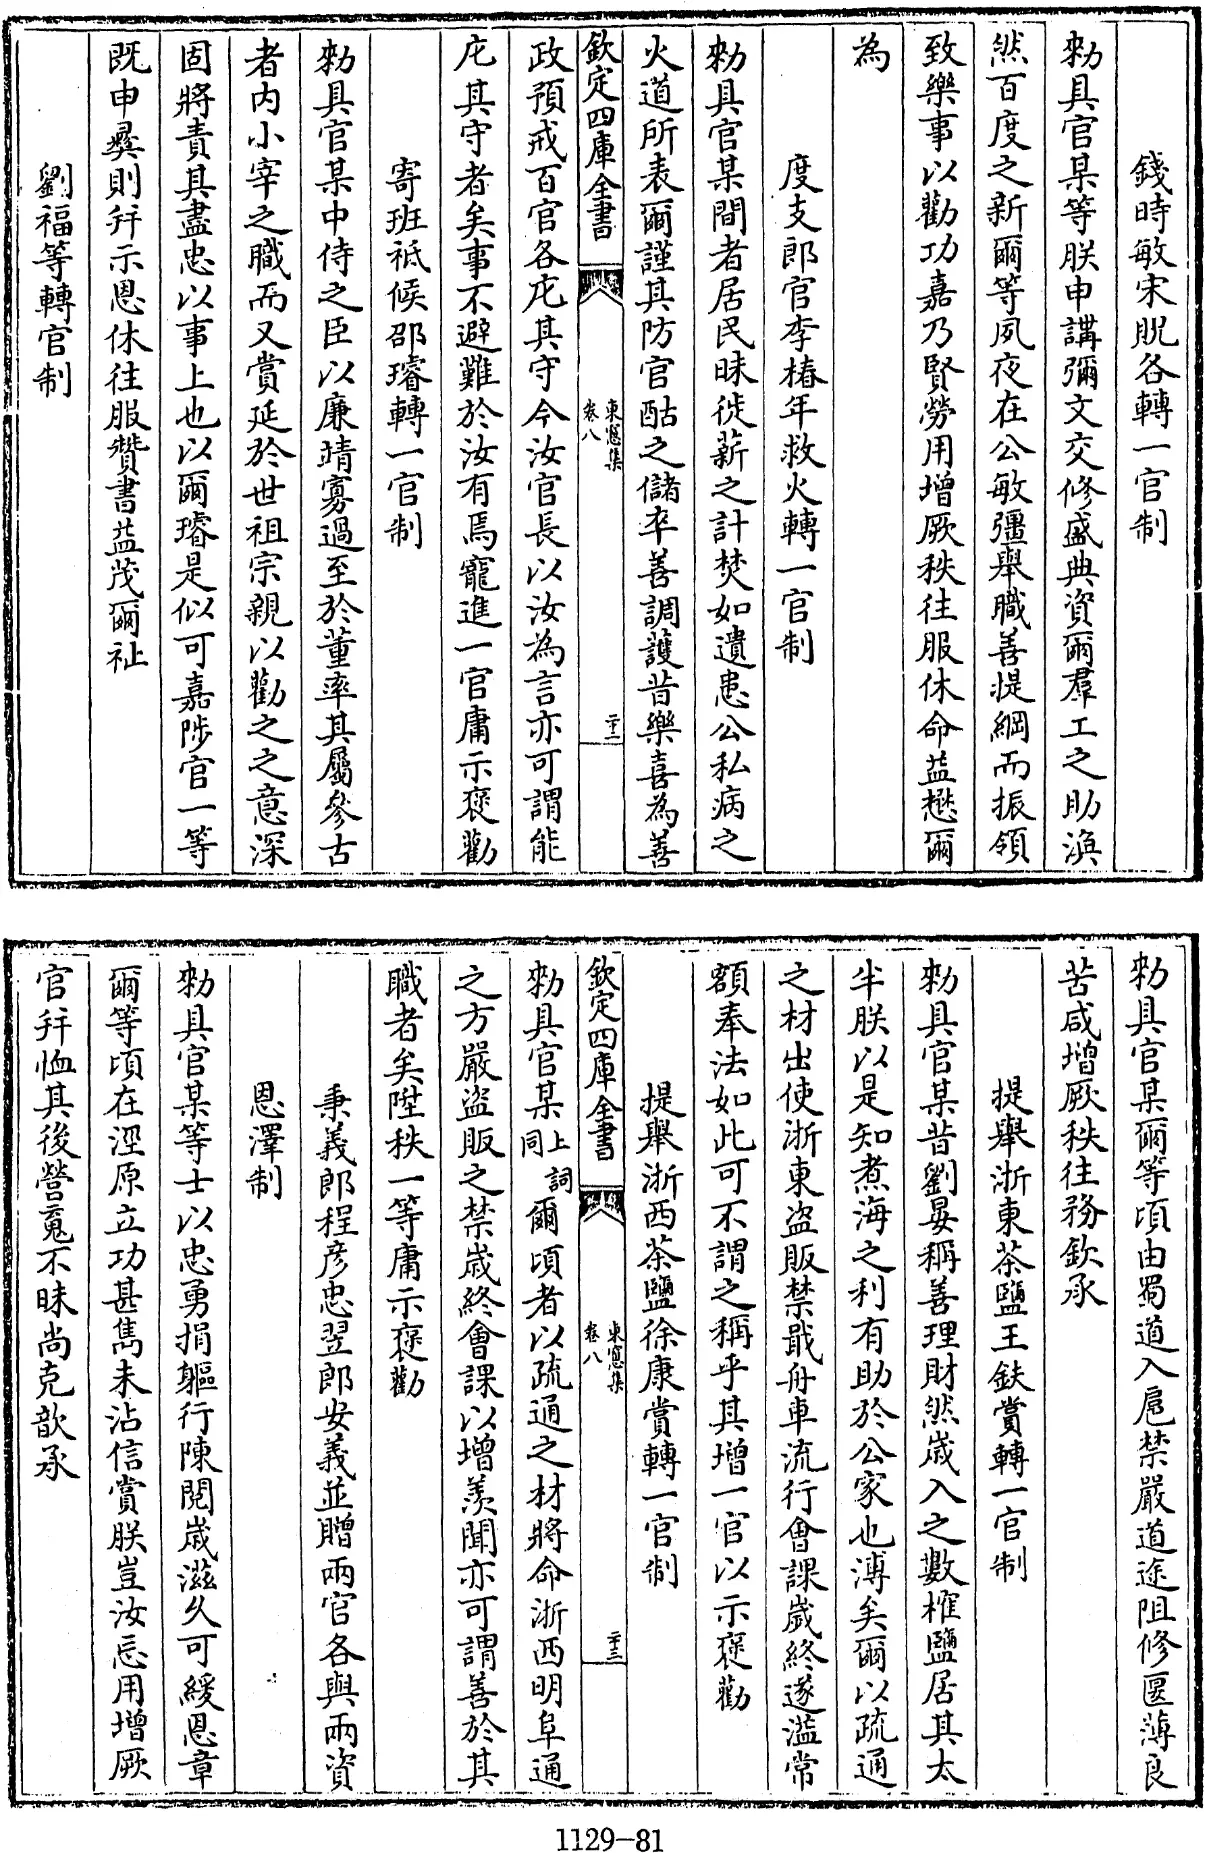 錢時敏宋貺各轉一官制
勑具官某等朕申講彌文交修盛典資爾羣工之助渙
然百度之新爾等夙夜在公敏彊舉職善提綱而振領
致樂事以勸功嘉乃賢勞用增厥秩往服休命益懋爾
為
度支郎官李椿年救火轉一官制
勑具官某間者居民昧徙薪之計焚如遺患公私病之
火道所表爾謹其防官酤之儲卒善調護昔樂喜為善
欽定四庫全書
東窻集
卷八
二十二
政預戒百官各庀其守今汝官長以汝為言亦可謂能
庀其守者矣事不避難於汝有焉寵進一官庸示褒勸
寄班祗候邵璿轉一官制
勑具官某中侍之臣以廉靖寡過至於董率其屬參古
者内小宰之職而又賞延於世祖宗親以勸之之意深
固將責其盡忠以事上也以爾璿是似可嘉陟官一等
既申彞則幷示恩休往服贊書益茂爾祉
劉福等轉官制
勑具官某爾等頃由蜀道入扈禁嚴道途阻修匽薄良
苦咸增厥秩往務欽承
提舉浙東茶鹽王鈇賞轉一官制
勑具官某昔劉晏稱善理財然歳入之數榷鹽居其太
半朕以是知煮海之利有助於公家也溥矣爾以疏通
之材出使浙東盜販禁戢舟車流行會課歲終遂溢常
額奉法如此可不謂之稱乎其增一官以示褒勸
提舉浙西茶鹽徐康賞轉一官制
欽定四庫全書
東窻集
卷八
二十三
勑具官某上詞同爾頃者以疏通之材將命浙西明阜通
之方嚴盜販之禁歳終會課以增羨聞亦可謂善於其
職者矣陞秩一等庸示褒勸
秉義郎程彦忠翌郎安義並贈兩官各與兩資
恩澤制
勑具官某等士以忠勇捐軀行陳閲歳滋久可緩恩章
爾等頃在涇原立功甚雋未沾信賞朕豈汝忘用增厥
官幷恤其後營䰟不昧尚克歆承
1129-81